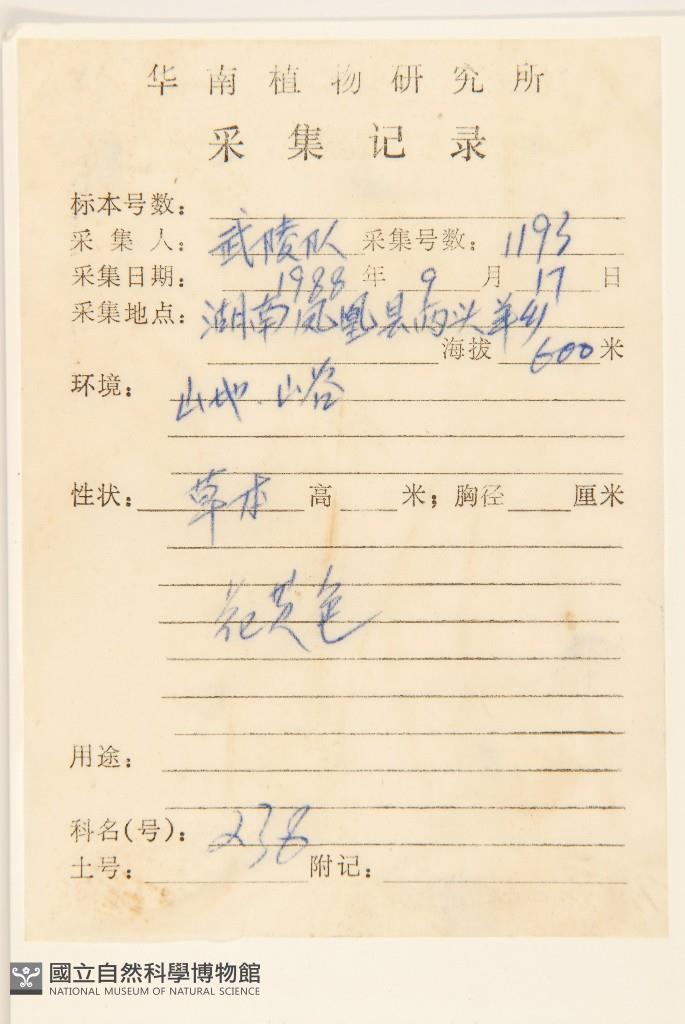 华南植物研究所
采集记录
标本号数：
采集人：武陵队 采集号数：1193
采集日期：1988年9月17日
采集地点：湖南凤凰县两头羊乡
海拔600米
环境：山地.山谷
性状：草本 高 米；胸径 厘米
花黄色
用途：
科名(号)：238
土号： 附记：
國立自然科學博物館
NATIONAL MUSEUM OF NATURAL SCIENCE